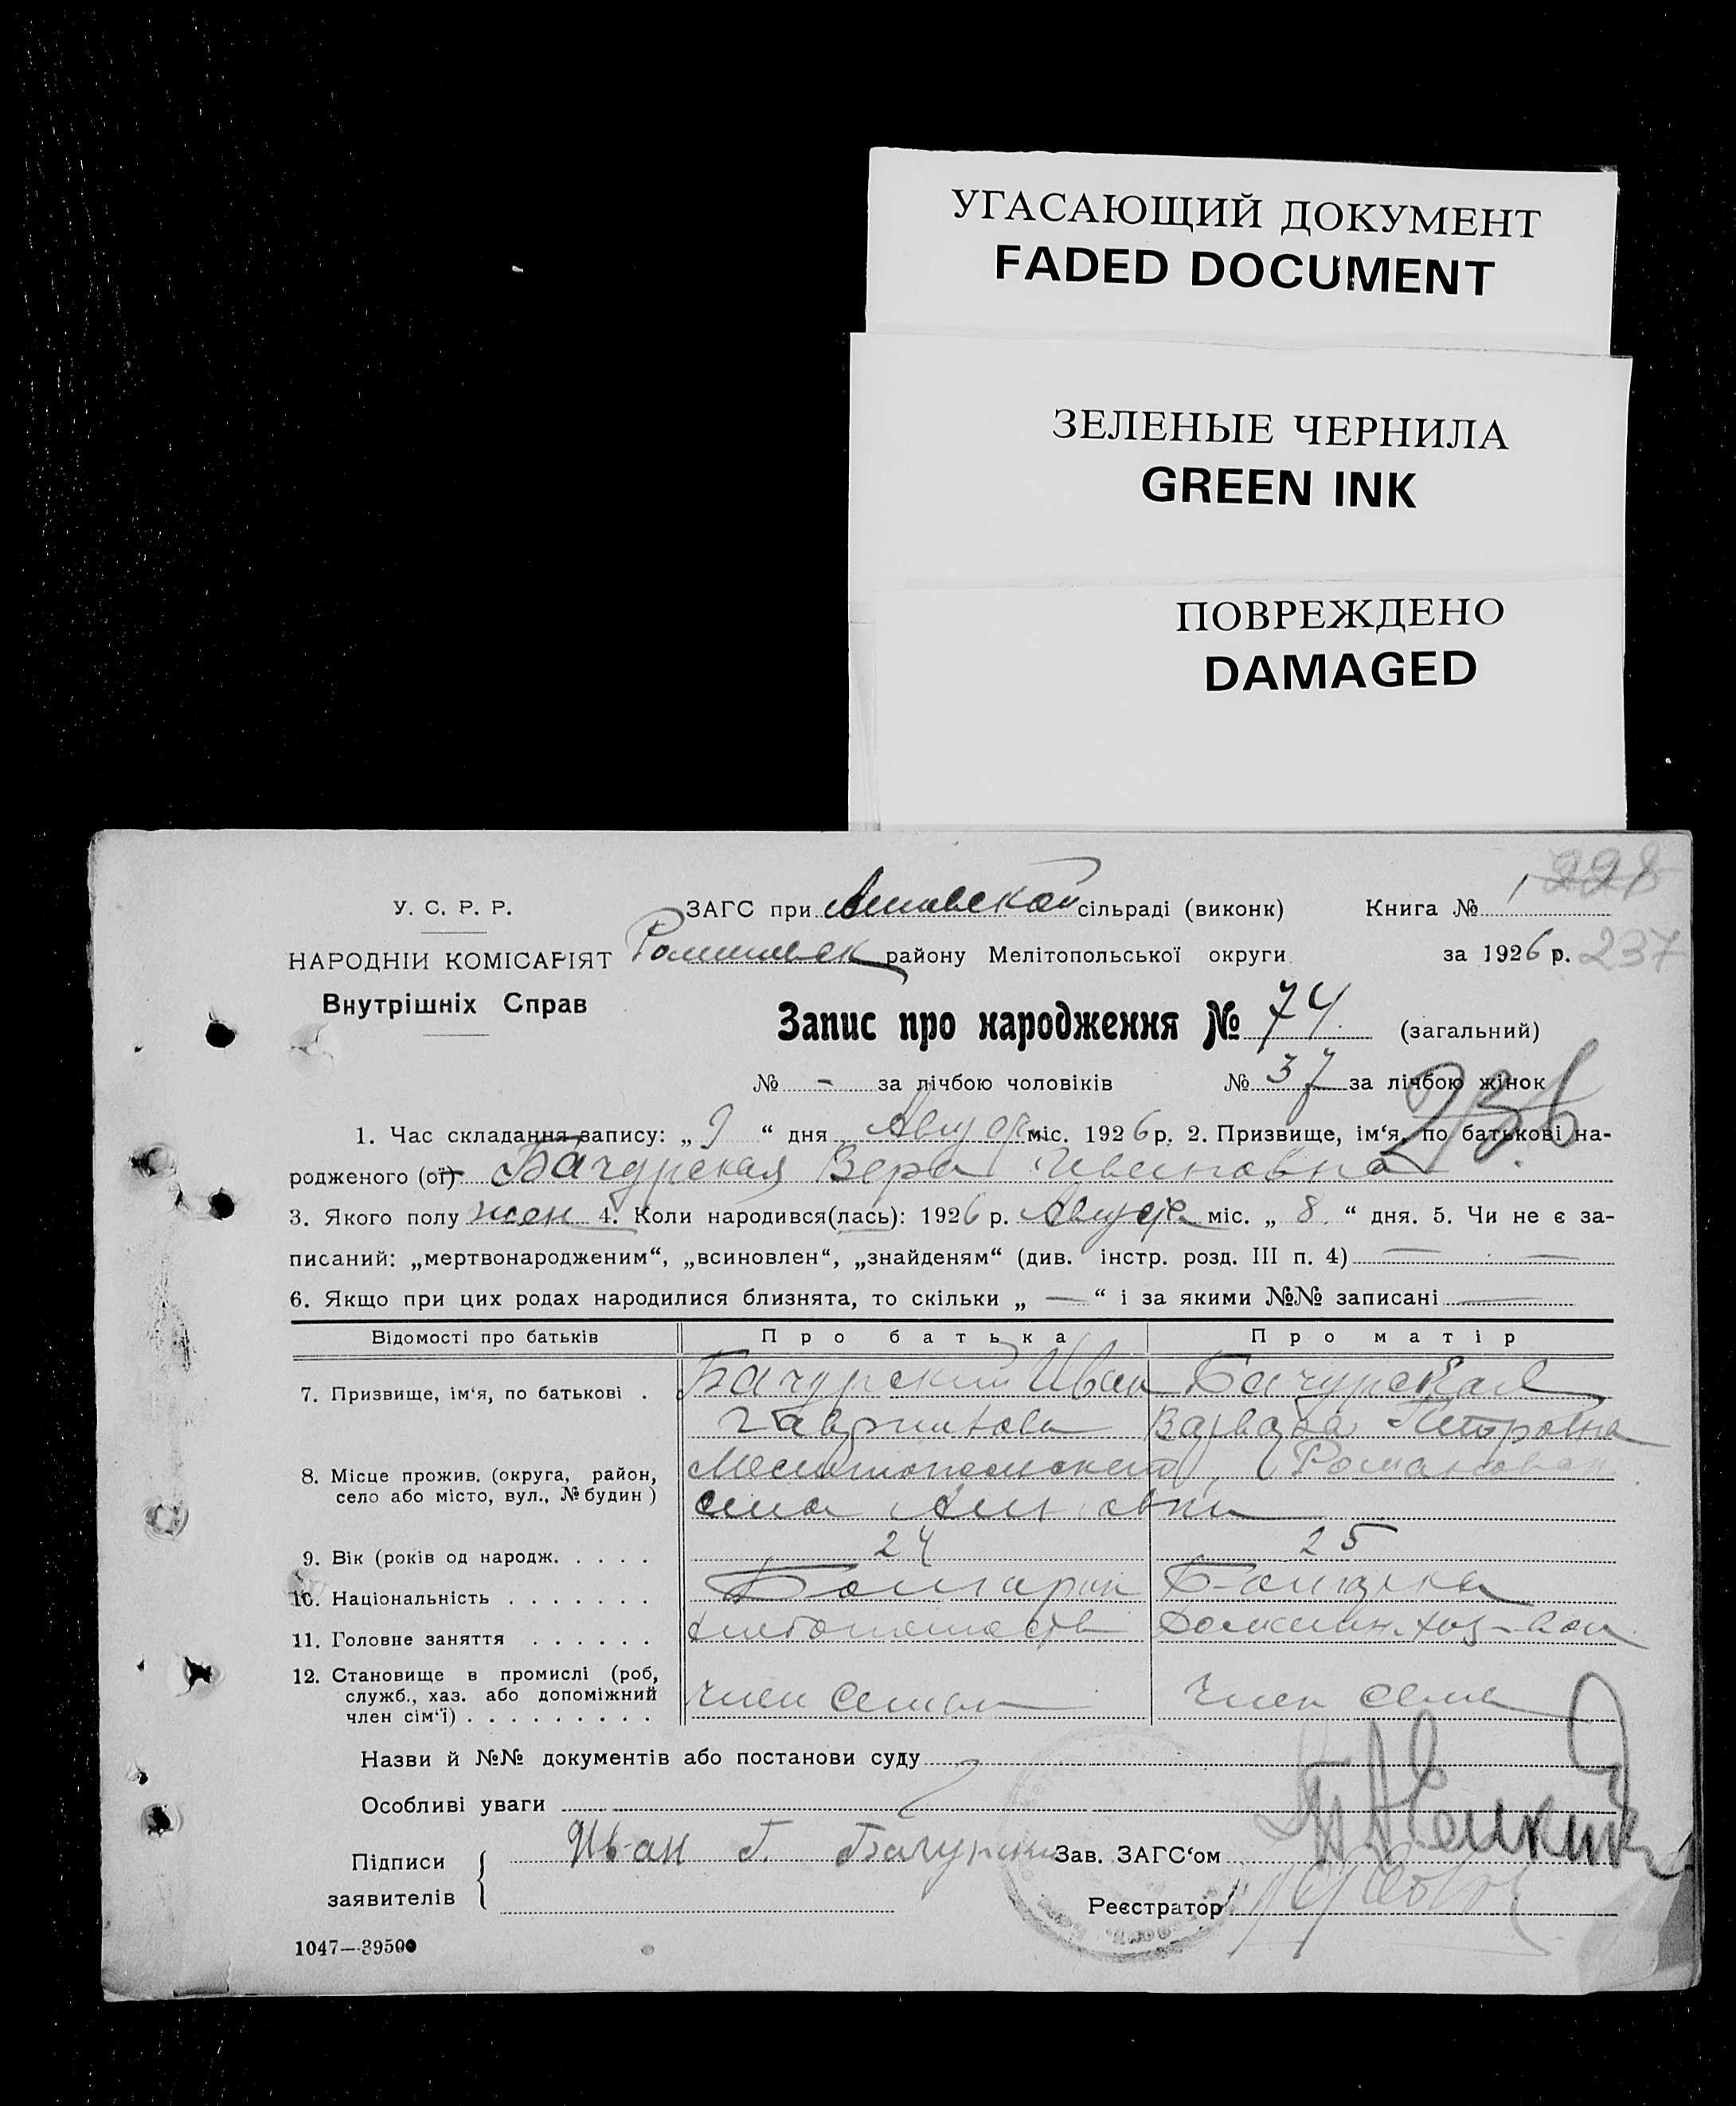 УГАСАЮЩИЙ ДОКУМЕНТ
FADED DOCUMENT
ЗЕЛЕНЫЕ ЧЕРНИЛА
GREEN INK
ПОВРЕЖДЕНО
DAMAGED
228
У. С. Р. Р. ЗАГС при сільраді (виконк) Книга № 1
НАРОДНІЙ КОМІСАРІЯТ району Мелітопольської округи за 1926 р. 237
Внутрішніх Справ
Запис про народження № 74 (загальний)
№ - за лічбою чоловіків № 37 за лічбою жінок
236
1. Час складання запису: „ 9 “ дня Август міс. 1926 р. 2. Призвище, ім‘я, по батькові на-
родженого (ої) Бачурская Вера Ивановна
3. Якого полу жен 4. Коли народився(лась): 1926 р. Август міс. „ 8 “ дня. 5. Чи не є за-
писаний: „мертвонародженим“, „всиновлен“, „знайденям“ (див. інстр. розд. III п. 4) — —
6. Якщо при цих родах народилися близнята, то скільки „ — “ і за якими №№ записані —
Відомості про батьків Про батька Про матір
7. Призвище, ім‘я, по батькові . Бачурский Иван Бачурская
Варвара Петровна
8. Місце прожив. (округа, район,
село або місто, вул., № будин )
9. Вік (років од народж. . . . . 24 25
10. Національність . . . . . . . Болгарин Болгарка
11. Головне заняття . . . . . .
12. Становище в промислі (роб,
служб., хаз. або допоміжний
член сім‘ї) . . . . . . . . . член семьи член семьи
Назви й №№ документів або постанови суду
Особливі уваги
Підписи Иван Г. Бачурски Зав. ЗАГС‘ом
заявителів
Реєстратор
1047—39500